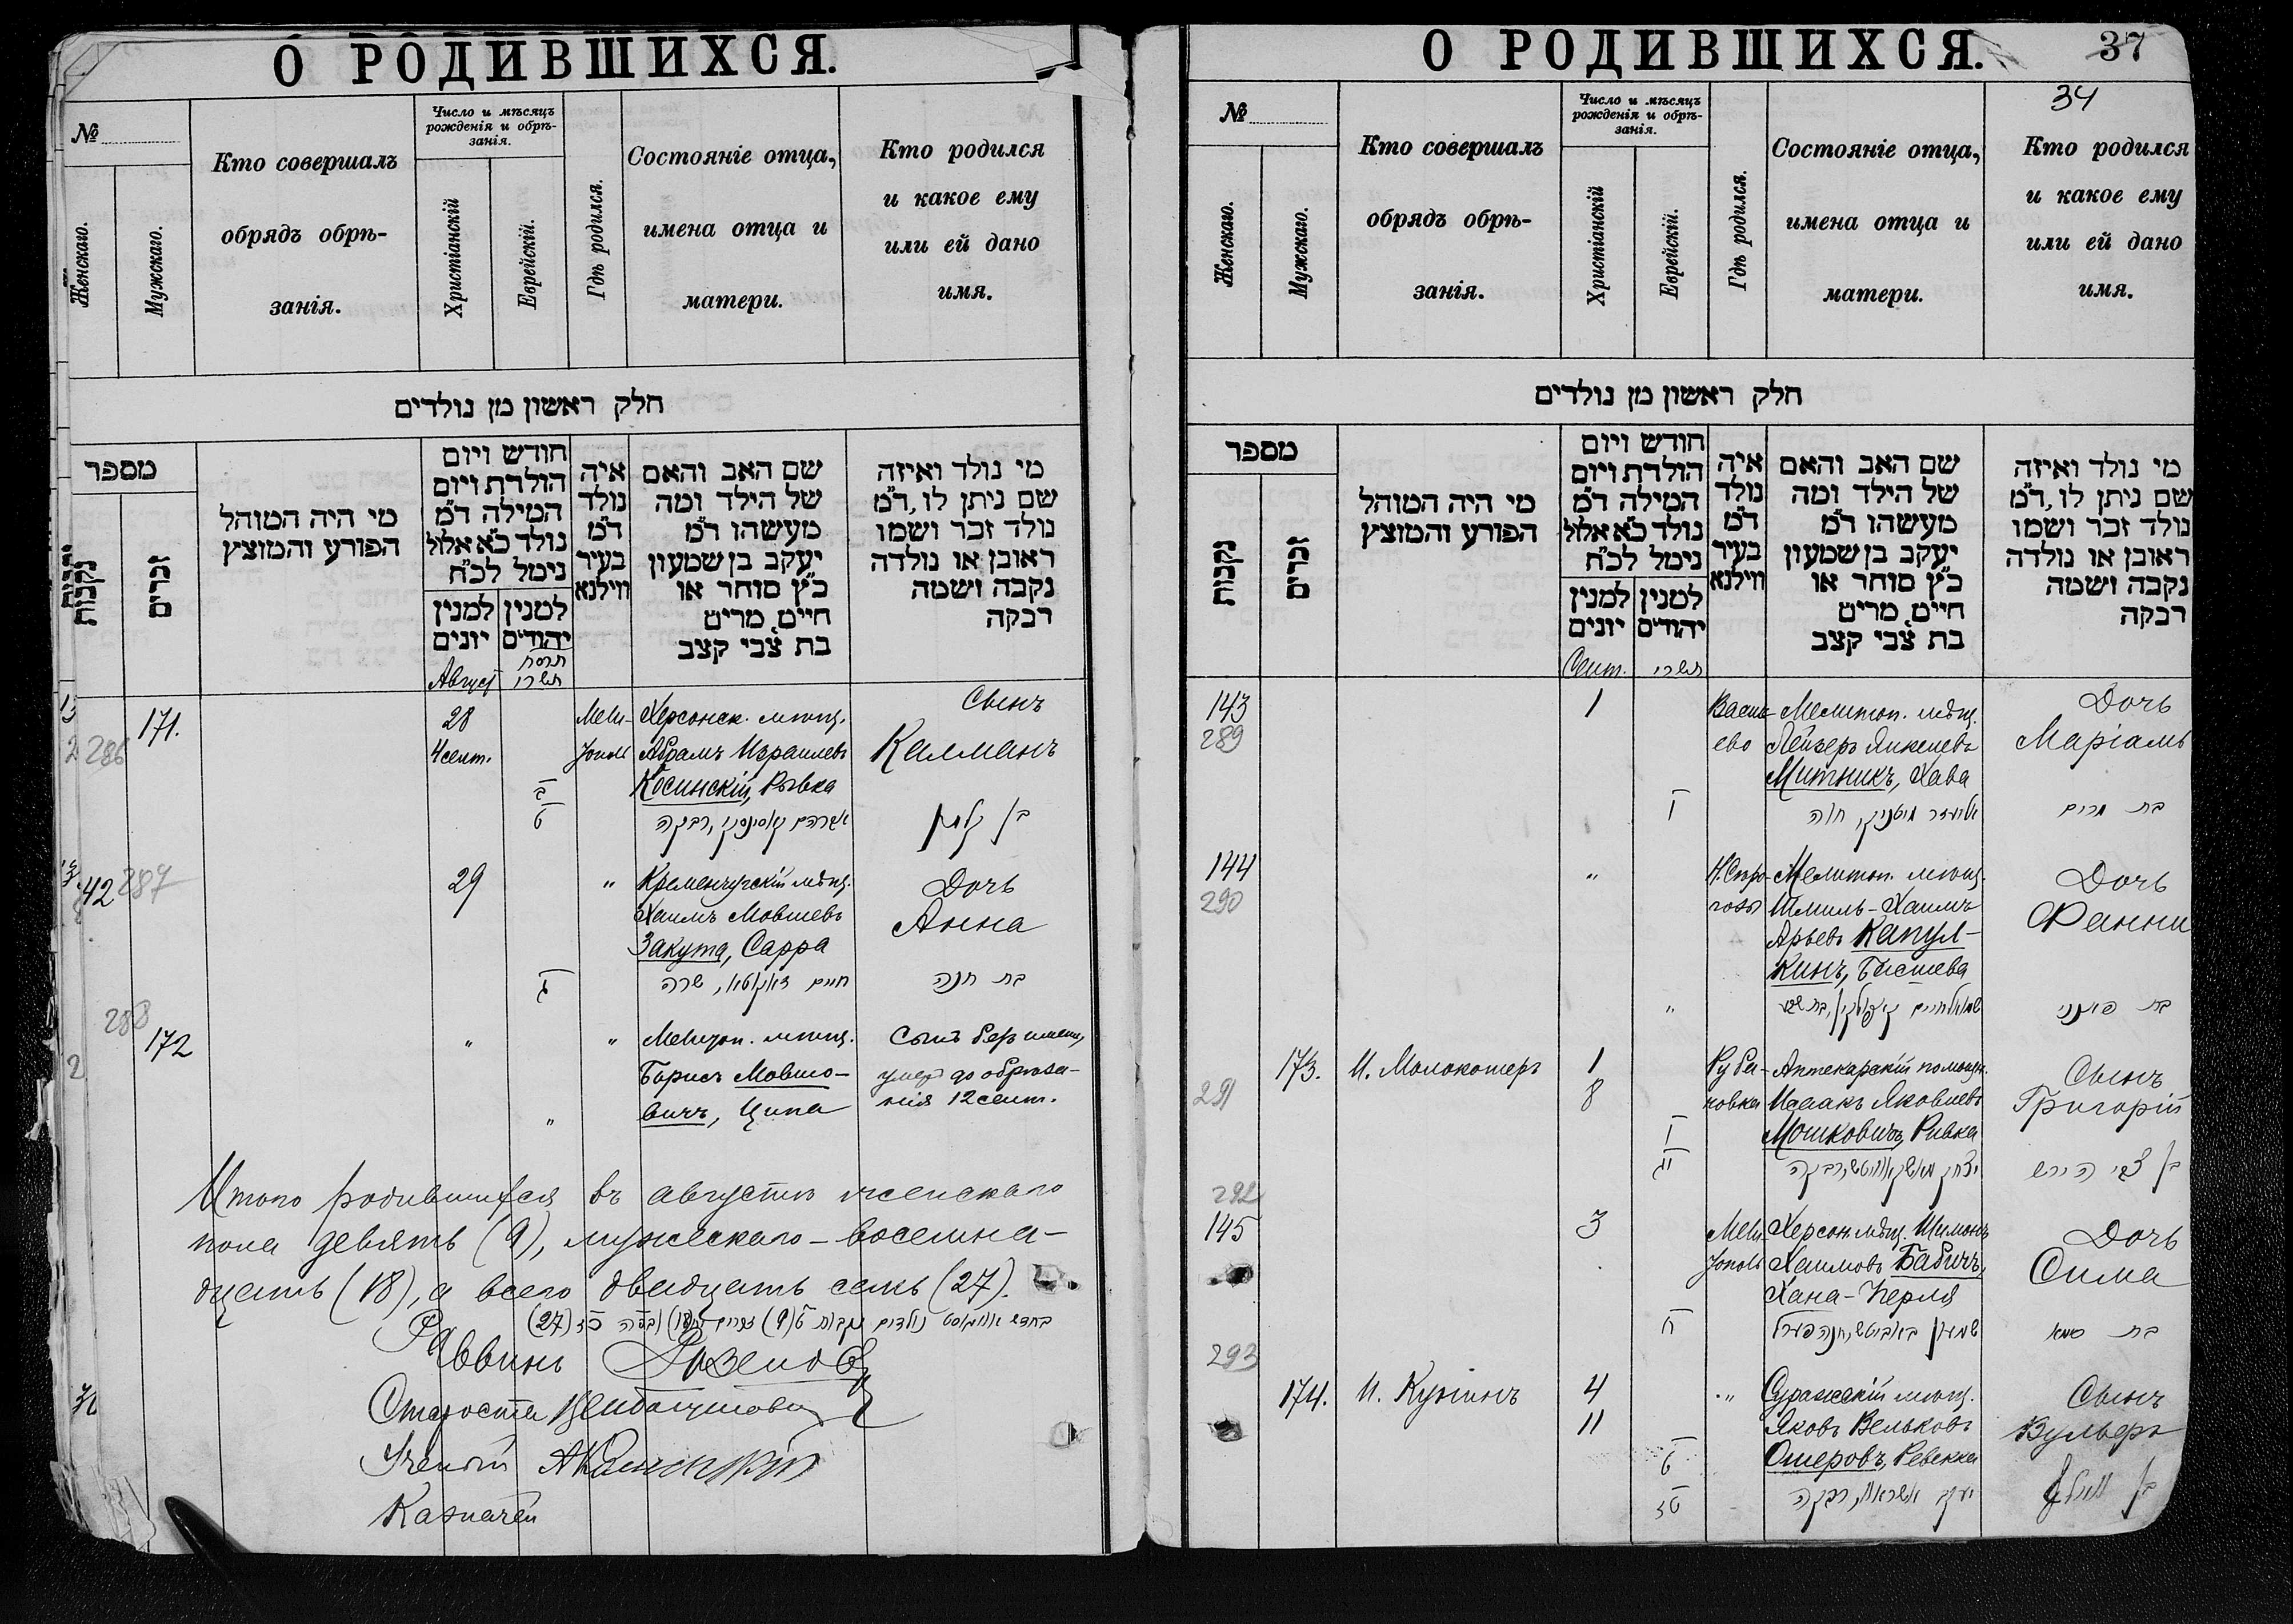 О РОДИВШИХСЯ.
№
Женскаго.
Мужскаго.
Кто совершалъ
обрядъ обрѣ-
занія.
Число и мѣсяцъ
рожденія и обрѣ-
занія.
Христіанскій
Еврейскій.
Гдѣ родился.
Состояніе отца,
имена отца и
матери.
Кто родился
и какое ему
или ей дано
имя.
חלק ראשון מן נולדים
מספר
נקבות
זכרים
מי היה המוהל
הפורע והמוצץ
חודש ויום
הולדת ויום
המילה ד״מ
נולד כ״א אלול
נימל לכ״ח
למנין יונים
למנין יהודים
איה
נולד
ד״מ
בעיר
ווילנא
שם האב והאם
של הילד ומה
מעשהו ד״מ
יעקב בן שמעון
כ״ץ סוחר או
חיים, מרים
בת צבי קצב
מי נולד ואיזה
שם ניתן לו, ד״מ
נולד זכר ושמו
ראובן או נולדה
נקבה ושמה
רבקה
Август
תרסח
תשרי
286
171.
28
4 сент.
ב
ט
Мели-
тополь
Херсонск. мѣщ.
Абрамъ Израилевъ
Косинскій, Рывка
אברהם קאסינסקי, רבקה
Сынъ
Калманъ
בן קלמן
42
287
29
ג
"
Кременчугскій мѣщ.
Хаимъ Мовшевъ
Закута, Сарра
חיים זאקוטא, שרה
Дочь
Анна
בת חנה
288
172
"
"
"
Мелитоп. мѣщ.
Борисъ Мовшо-
вичъ, Ципа
Сынъ безъ имени,
умеръ до обрѣза-
нія 12 сент.
Итого родившихся въ августѣ женскаго
пола девять (9), мужескаго - восемна-
дцать (18), а всего двадцать семь (27).
בחדש אויגוסט נולדים נקבות ט (9) זכרים (18) כז (27)
Раввинъ
Староста
Ученый А Каменскій
Казначей
О РОДИВШИХСЯ.
37
34
№
Женскаго.
Мужскаго.
Кто совершалъ
обрядъ обрѣ-
занія.
Число и мѣсяцъ
рожденія и обрѣ-
занія.
Христіанскій
Еврейскій.
Гдѣ родился.
Состояніе отца,
имена отца и
матери.
Кто родился
и какое ему
или ей дано
имя.
חלק ראשון מן נולדים
מספר
נקבות
זכרים
מי היה המוהל
הפורע והמוצץ
חודש ויום
הולדת ויום
המילה ד״מ
נולד כ״א אלול
נימל לכ״ח
למנין יונים
למנין יהודים
איה
נולד
ד״מ
בעיר
ווילנא
שם האב והאם
של הילד ומה
מעשהו ד״מ
יעקב בן שמעון
כ״ץ סוחר או
חיים, מרים
בת צבי קצב
מי נולד ואיזה
שם ניתן לו, ד״מ
נולד זכר ושמו
ראובן או נולדה
נקבה ושמה
רבקה
Сент.
תשרי
143
289
1
ו
Василь-
ево
Мелитоп. мѣщ.
Лейзеръ Янкелевъ
Митникъ, Хава
אליעזר מיטניק, חוה
Дочь
Маріамъ
בת מרים
144
290
"
"
Мелитоп. мѣщ.
Шмиль-Хаимъ
Арьевъ Капул-
кинъ, Бысшева
שמואל חיים קאפולקין, בת שבע
Дочь
Фанни
בת פאנני
173.
291
И. Молокотеръ
1
8
ו
יג
Рубa-
новка
Аптекарскій помощн.
Исаакъ Яковлевъ
Мошковичъ, Ривка
יצחק מאשקאוויטש, רבקה
Сынъ
Григорій
בן צבי הירש
292
145
3
ח
Мели-
тополь
Херсон. мѣщ. Шимонъ
Хаимовъ Бабичъ,
Хана-Перля
שמעון באביטש, חנה פערל
Дочь
Сима
בת סימא
293
174.
И. Кугинъ
4
11
ט
טז
"
Суражскій мѣщ.
Яковъ Вельковъ
Ошеровъ, Ревекка
יעקב אשראוו, רבקה
Сынъ
Вульфъ
בן וואלף